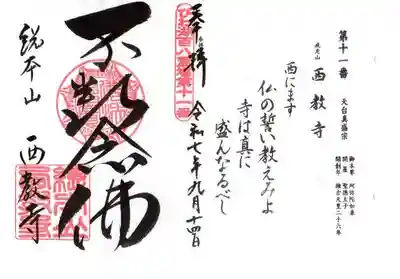 第十一番
天台真盛宗
戒光山
西教寺
御本尊 阿弥陀如来
開基 聖徳太子
開創年 推古天皇二十六年
西にます
仏の誓い教えみよ
寺は真に
盛んなるべし
奉拝
令和七年九月十四日
不断念佛
西教寺